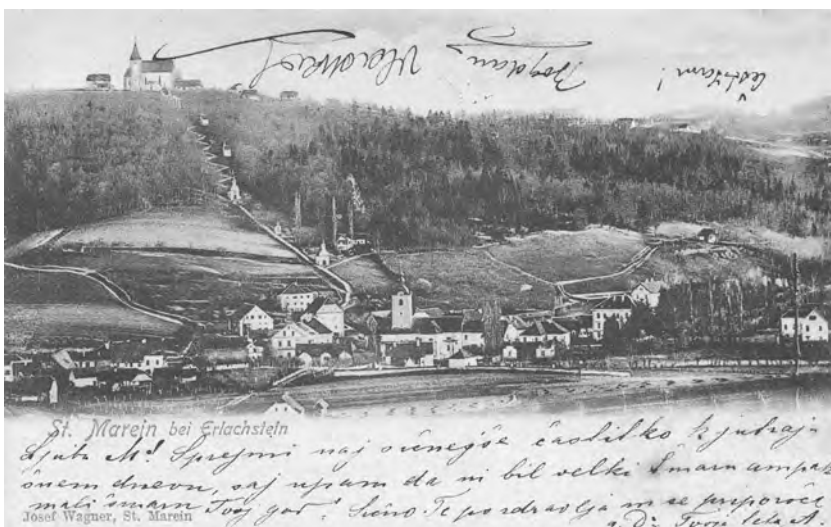 Čestitam!
Bogdan
St. Marein bei Erlachstein
Ljuba M! Sprejmi naj srčnejše častitko k jutraj-
šnem dnevu, saj upam da ni bil velki Šmarn ampak
mali šmarn Tvoj god! Srčno Te pozdravlja in se priporoča
Josef Wagner, St. Marein
Tvoja